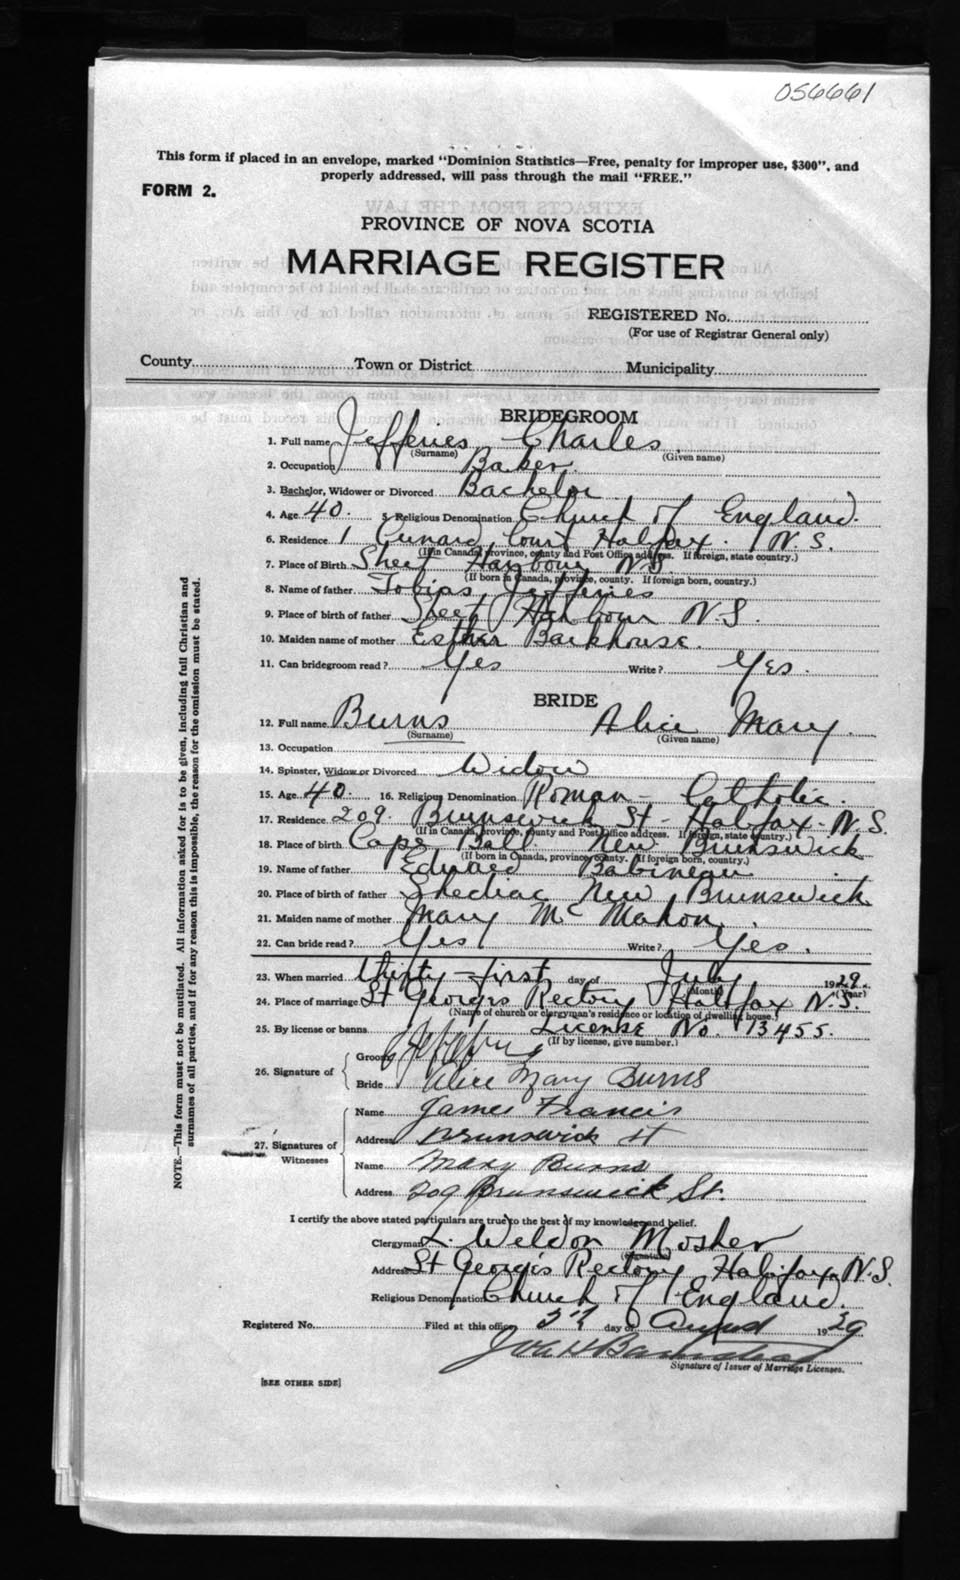 056661
This form if placed in an envelope, marked "Dominion Statistics—Free, penalty for improper use, $300", and
properly addressed, will pass through the mail "FREE."
FORM 2.
PROVINCE OF NOVA SCOTIA
MARRIAGE REGISTER
REGISTERED No.
(For use of Registrar General only)
County Town or District Municipality
BRIDEGROOM
1. Full name Jefferies Charles
(Surname) (Given name)
2. Occupation Baker
3. Bachelor, Widower or Divorced Bachelor
4. Age 40. 5. Religious Denomination Church of England.
6. Residence 1 Cunard Court Halifax. N.S.
(If in Canada, province, county and Post Office address. If foreign, state country.)
7. Place of Birth Sheet Harbour N.S.
(If born in Canada, province, county. If foreign born, country.)
8. Name of father Tobias Jefferies
9. Place of birth of father Sheet Harbour N.S.
10. Maiden name of mother Esther Barkhouse.
11. Can bridegroom read? Yes Write? Yes.
BRIDE
12. Full name Burns Alice Mary.
(Surname) (Given name)
13. Occupation
14. Spinster, Widow or Divorced Widow
15. Age 40. 16. Religious Denomination Roman - Catholic.
17. Residence 209. Brunswick St - Halifax - N.S.
(If in Canada, province, county and Post Office address. If foreign, state country.)
18. Place of birth Cape Bald New Brunswick
(If born in Canada, province, county. If foreign born, country.)
19. Name of father Edward Babineau
20. Place of birth of father Shediac New Brunswick
21. Maiden name of mother Mary McMahon.
22. Can bride read? Yes Write? Yes.
23. When married thirty-first day of July 1929.
(Month) (Year)
24. Place of marriage St George's Rectory Halifax N.S.
(Name of church or clergyman's residence or location of dwelling house.)
25. By license or banns License No. 13455.
(If by license, give number.)
26. Signature of
Groom
Bride Alice Mary Burns
27. Signatures of
Witnesses
Name James Francis
Address Brunswick St
Name Mary Burns
Address 209 Brunswick St.
I certify the above stated particulars are true to the best of my knowledge and belief.
Clergyman L. Weldon Mosher
(Signature)
Address St George's Rectory Halifax N.S.
Religious Denomination Church of England.
Registered No. Filed at this office day of 1929
Signature of Issuer of Marriage Licenses.
[SEE OTHER SIDE]
NOTE.—This form must not be mutilated. All information asked for is to be given, including full Christian and
surnames of all parties, and if for any reason this is impossible, the reason for the omission must be stated.